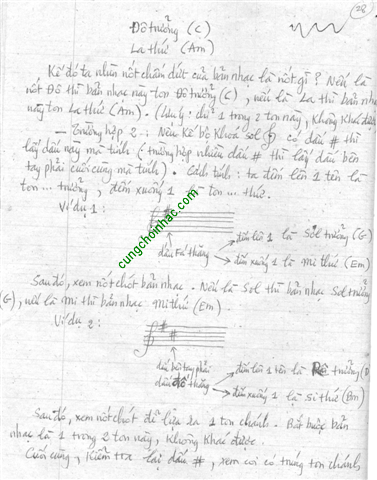 28
Đô trưởng (C)
La thứ (Am)
Kế đó ta nhìn nốt chấm dứt của bản nhạc là nốt gì? Nếu là
nốt Đô thì bản nhạc này ton Đô trưởng (C), nếu là La thì bản nhạc
này ton La thứ (Am). (Lưu ý: chỉ 1 trong 2 ton này, không khác được
- Trường hợp 2: Nếu kế bê Khoá sol có dấu # thì
lấy dấu này mà tính (trường hợp nhiều dấu # thì lấy dấu bên
tay phải cuối cùng mà tính). Cách tính: ta đếm lên 1 tên là
ton ... trưởng, đếm xuống 1 là ton ... thứ.
Ví dụ 1:
đếm lên 1 là Sol trưởng (G)
dấu Fa thăng
đếm xuống 1 là mi thứ (Em)
Sau đó, xem nốt chót bản nhạc. Nếu là Sol thì bản nhạc Sol trưởng
(G), nếu là mi thì bản nhạc mi thứ (Em).
Ví dụ 2:
dấu bên tay phải
đếm lên 1 tên là Rê trưởng (D
dấu đô thăng
đếm xuống 1 là Si thứ (Bm)
Sau đó, xem nốt chót để lựa ra 1 ton chánh. Bắt buộc bản
nhạc là 1 trong 2 ton này, không khác được.
Cuối cùng, kiểm tra lại dấu #, xem coi có trúng ton chánh
cungchoinhac.com